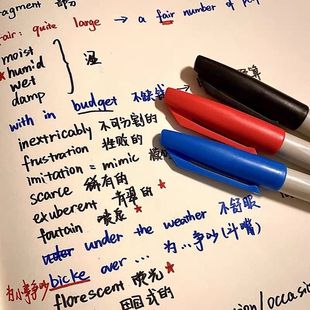 agment 部分
fair: quite large → a fair number of
moist
humid
wet
damp
湿
with in budget 不缺钱
inextricably 不可分割的
frustration 挫败的
imitation = mimic
scarce 稀有的
exuberent
fountain 喷泉
under the weather 不舒服
为小事争吵 bicke over ... 为..争吵(斗嘴)
florescent 荧光
式的